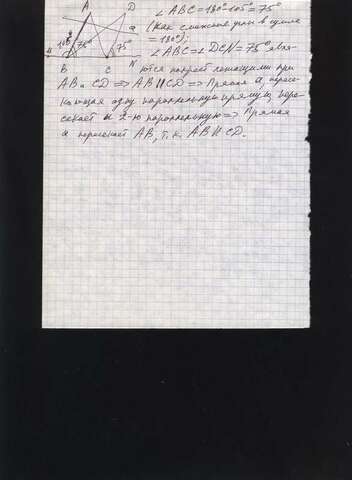 A D
∠ABC=180°-105°=75°
(как смежные углы в сумме
=180°);
a
105° 75° 75°
B C N
∠ABC=∠DCN=75° явля-
ются накрест лежащими при
AB и CD ⟹ AB∥CD ⟹ Прямая a пересе-
кающая одну параллельную прямую, пере-
секает и 2-ю параллельную ⟹ Прямая
a пересекает AB, т.к. AB∥CD.